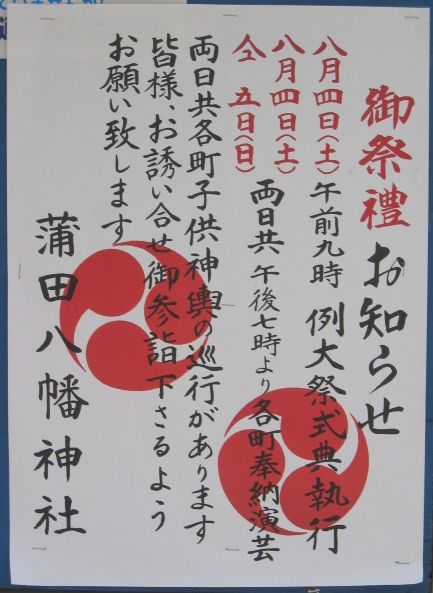 御祭禮お知らせ
八月四日(土)午前九時 例大祭式典執行
八月四日(土)
仝 五日(日)
両日共 午後七時より各町奉納演芸
両日共各町子供神輿の巡行があります
皆様、お誘い合せ御参詣下さるよう
お願い致します
蒲田八幡神社